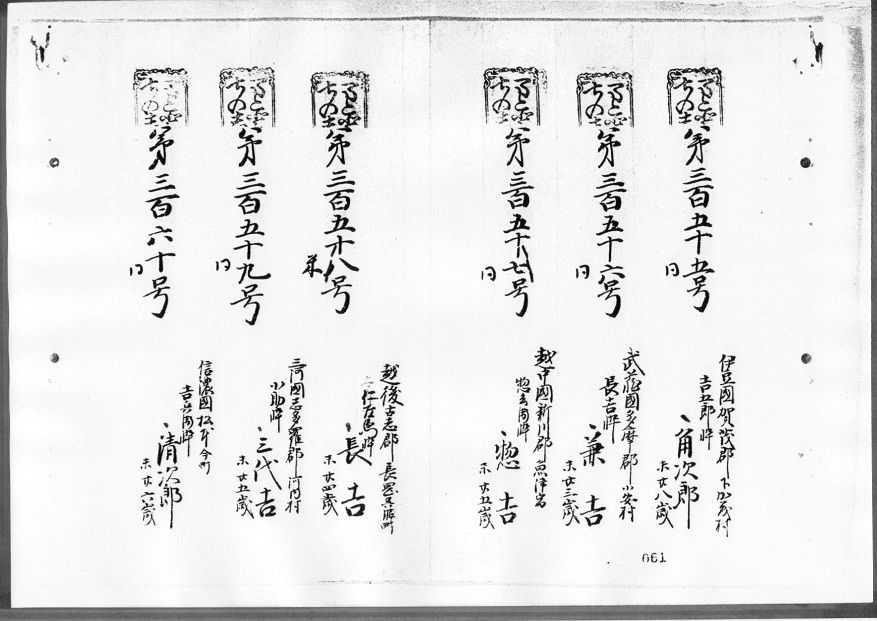 第三百五十五号
同
伊豆國賀茂郡下加茂村
吉五郎忰
角次郎
未廿八歳
第三百五十六号
同
武蔵國多摩郡小安村
長吉忰
兼吉
未廿三歳
第三百五十七号
同
越中國新川郡魚津
忰
惣吉
未廿五歳
第三百五十八号
越後古志郡長岡
仁左馬忰
長吉
未廿四歳
第三百五十九号
同
三河國志多羅郡河内村
小助忰
三代吉
未廿五歳
第三百六十号
同
信濃國松本今町
忰
清次郎
未廿六歳
661